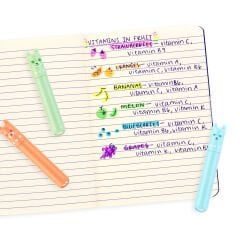 VITAMINS IN FRUIT
STRAWBERRIES - VITAMIN C,
VITAMIN B9
ORANGES - VITAMIN A,
VITAMIN C, VITAMIN B6
BANANAS - VITAMIN C,
VITAMIN B6
MELON - VITAMIN C,
VITAMIN B6, VITAMIN K
BLUEBERRIES - VITAMIN C,
VITAMIN B6, VITAMIN K
GRAPES - VITAMIN C,
VITAMIN K, VITAMIN B6